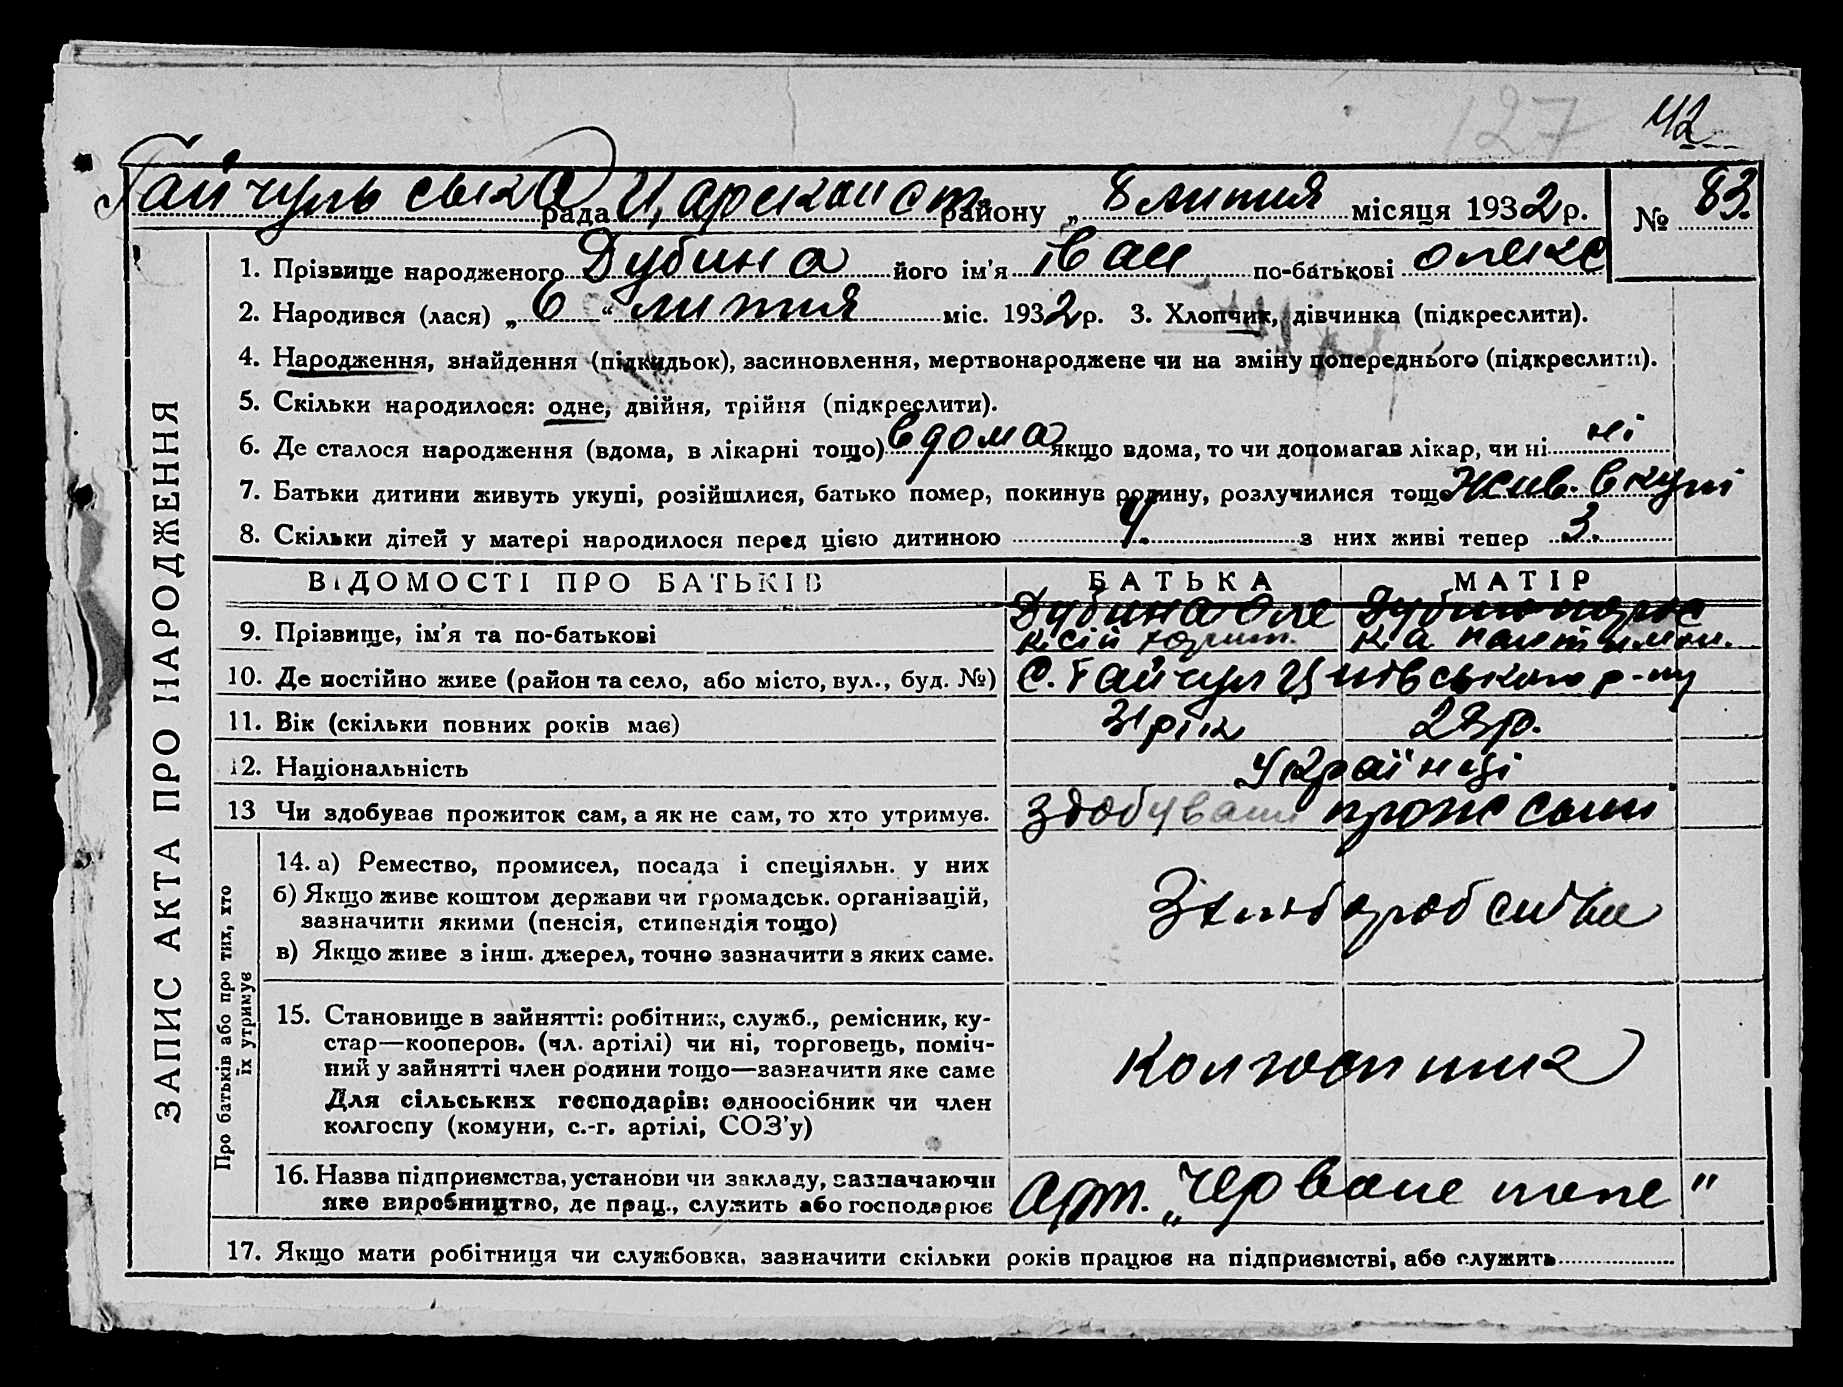 127
42
Гайчульська рада Царекост. району „ 8 липня місяця 1932 р. № 83.
ЗАПИС АКТА ПРО НАРОДЖЕННЯ
1. Прізвище народженого Дубина його ім'я Іван по-батькові олекс
2. Народився (лася) „ 6 “ липня міс. 1932 р. 3. Хлопчик, дівчинка (підкреслити).
4. Народження, знайдення (підкидьок), засиновлення, мертвонароджене чи на зміну попереднього (підкреслити).
5. Скільки народилося: одне, двійня, трійня (підкреслити).
6. Де сталося народження (вдома, в лікарні тощо) вдома якщо вдома, то чи допомагав лікар, чи ні ні
7. Батьки дитини живуть укупі, розійшлися, батько помер, покинув родину, розлучилися тощо жив. вкупі
8. Скільки дітей у матері народилося перед цією дитиною 4. з них живі тепер 3.
ВІДОМОСТІ ПРО БАТЬКІВ БАТЬКА МАТІР
9. Прізвище, ім'я та по-батькові Дубина Оле Дубина
ксій
10. Де постійно живе (район та село, або місто, вул., буд. №) С. Гайчул
11. Вік (скільки повних років має) 31 рік 28 р.
12. Національність Українці
13 Чи здобував прожиток сам, а як не сам, то хто утримує. здобували прож сами
Про батьків або про тих, хто їх утримує
14. а) Ремество, промисел, посада і спеціяльн. у них
б) Якщо живе коштом держави чи громадськ. організацій,
зазначити якими (пенсія, стипендія тощо)
в) Якщо живе з інш. джерел, точно зазначити з яких саме.
15. Становище в зайнятті: робітник, служб., ремісник, ку-
стар—кооперов. (чл. артілі) чи ні, торговець, поміч-
ний у зайнятті член родини тощо—зазначити яке саме
Для сільських господарів: одноосібник чи член
колгоспу (комуни, с.-г. артілі, СОЗ'у)
колгоспник
16. Назва підприємства, установи чи закладу, зазначаючи
яке виробництво, де прац., служить або господарює
Арт. „Червоне поле"
17. Якщо мати робітниця чи службовка, зазначити скільки років працює на підприємстві, або служить